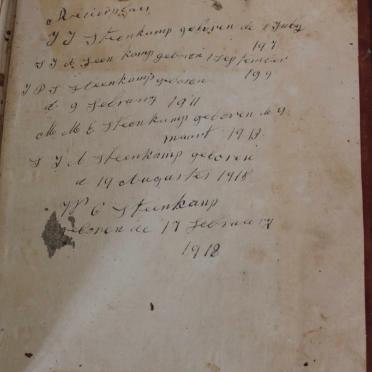 J J Steenkamp geboren de 1 July
197
S J A Steenkamp geboren 1 September
J P S Steenkamp geboren
d 9 Februarij 1911
M M E Steenkamp geboren de 9
maart 1913
S J A Steenkamp geboren
d 19 Augustus 1918
Steenkamp
geboren de 17 February
1918